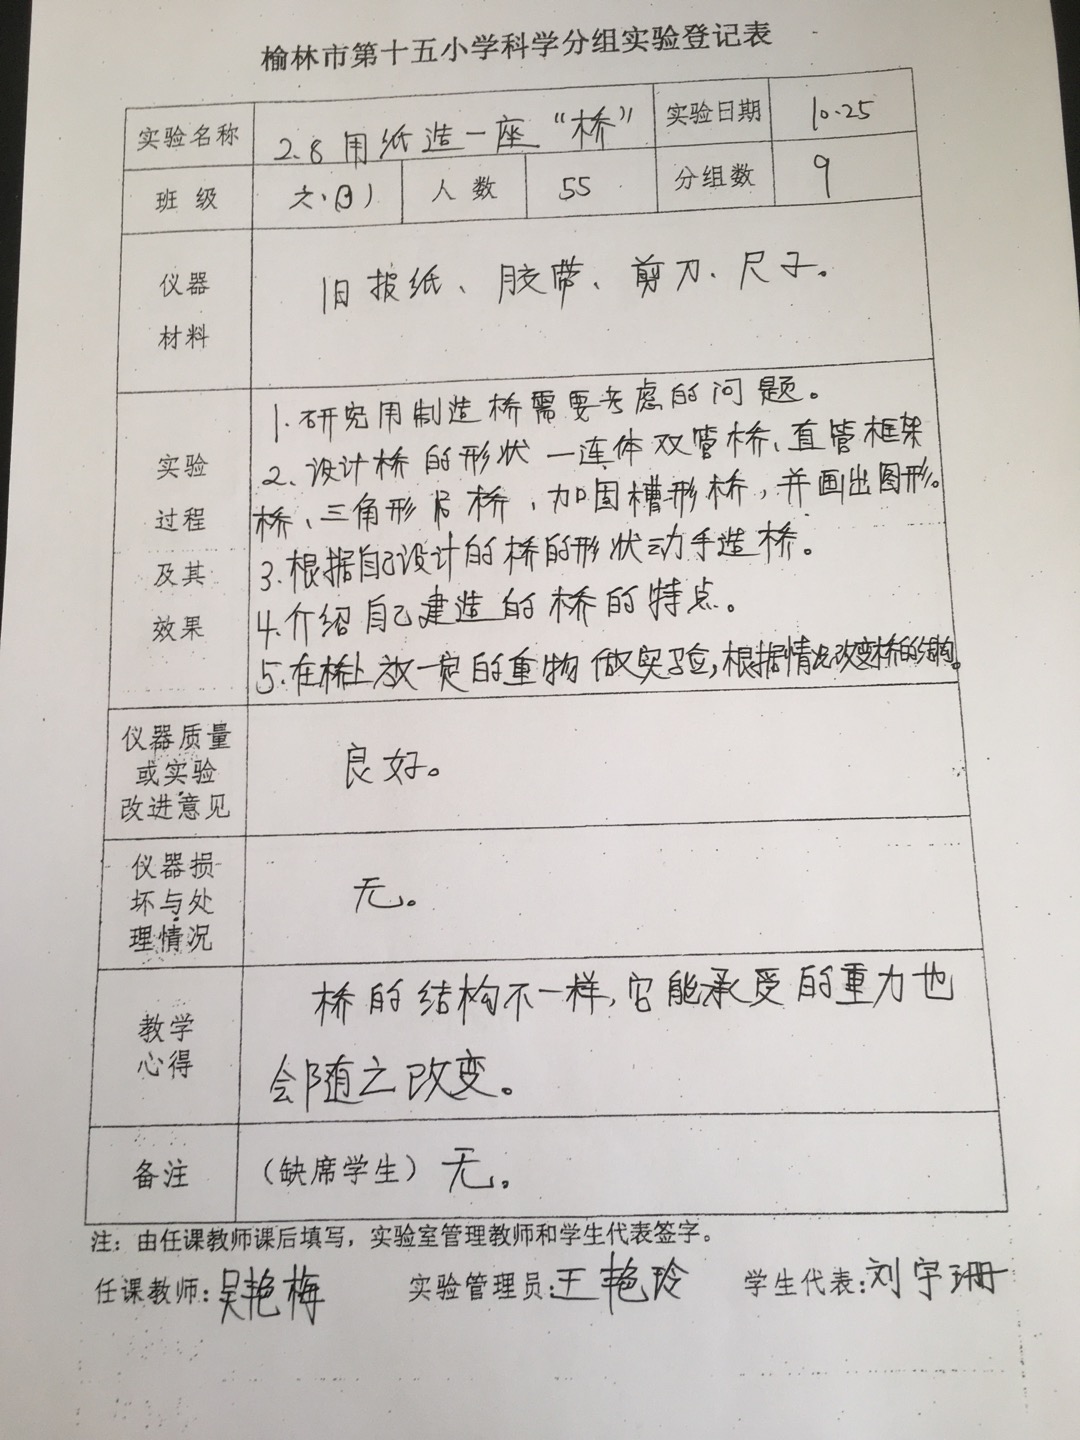 榆林市第十五小学科学分组实验登记表
实验名称 2.8 用纸造一座“桥” 实验日期 10.25
班级 六.(3) 人数 55 分组数 9
仪器
材料
旧报纸、胶带、剪刀、尺子。
实验
过程
及其
效果
1.研究用制造桥需要考虑的问题。
2、设计桥的形状一连体双管桥、直管框架
桥、三角形吊桥、加固槽形桥,并画出图形。
3.根据自己设计的桥的形状动手造桥。
4.介绍自己建造的桥的特点。
5.在桥上放一定的重物做实验,根据情况改变桥的结构。
仪器质量
或实验
改进意见
良好。
仪器损
坏与处
理情况
无。
教学
心得
桥的结构不一样,它能承受的重力也
会随之改变。
备注 (缺席学生) 无。
注：由任课教师课后填写，实验室管理教师和学生代表签字。
任课教师:吴艳梅 实验管理员:王艳玲 学生代表:刘宇珊